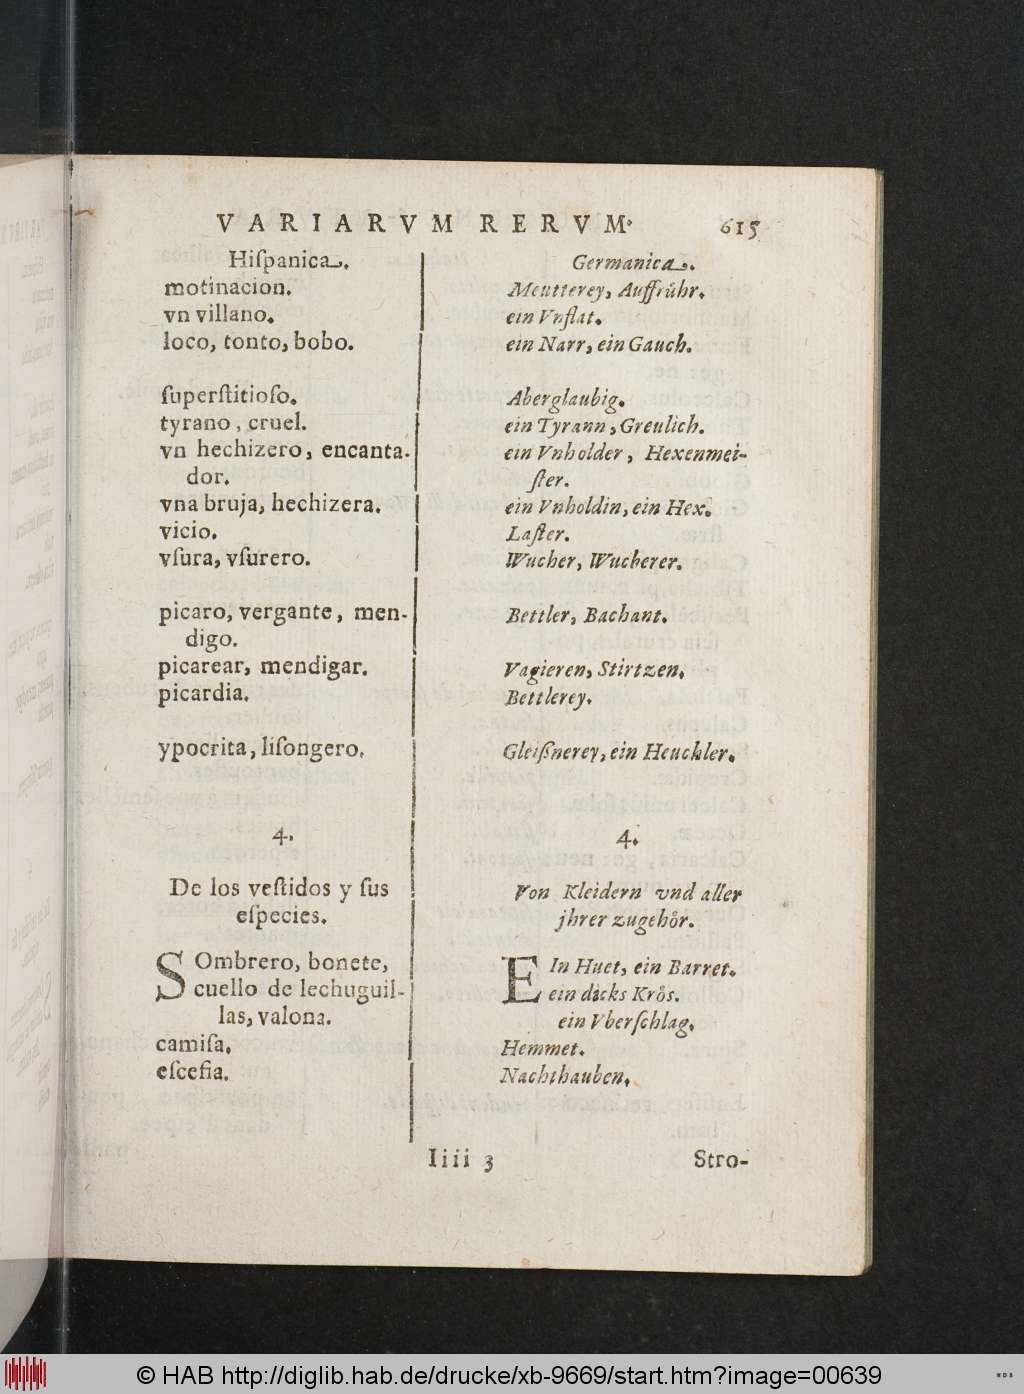 VARIARVM RERVM. 615
Hiſpanica.
motinacion.
vn villano.
loco, tonto, bobo.
ſuperſtitioſo.
tyrano, cruel.
vn hechizero, encanta-
dor.
vna bruja, hechizera.
vicio.
vſura, vſurero.
picaro, vergante, men-
digo.
picarear, mendigar.
picardia.
ypocrita, liſongero.
4.
De los veſtidos y ſus
eſpecies.
SOmbrero, bonete,
cuello de lechuguil-
las, valona.
camiſa.
eſcofia.
Germanica.
Meutterey, Auffrůhr.
ein Vnflat.
ein Narr, ein Gauch.
Aberglaubig.
ein Tyrann, Greulich.
ein Vnholder, Hexenmei-
ſter.
ein Vnholdin, ein Hex.
Laſter.
Wucher, Wucherer.
Bettler, Bachant.
Vagieren, Stirtzen.
Bettlerey.
Gleißnerey, ein Heuchler.
4.
Von Kleidern vnd aller
jhrer zugehoͤr.
EIn Huet, ein Barret.
ein dicks Kroͤs.
ein Vberſchlag.
Hemmet.
Nachthauben.
Iiii 3 Stro-
© HAB http://diglib.hab.de/drucke/xb-9669/start.htm?image=00639